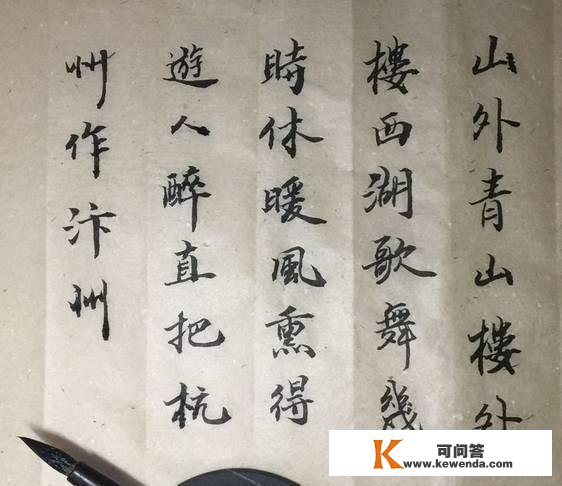 山外青山樓外
樓西湖歌舞幾
時休暖風熏得
遊人醉直把杭
州作汴州
K 可问答
www.kewenda.com